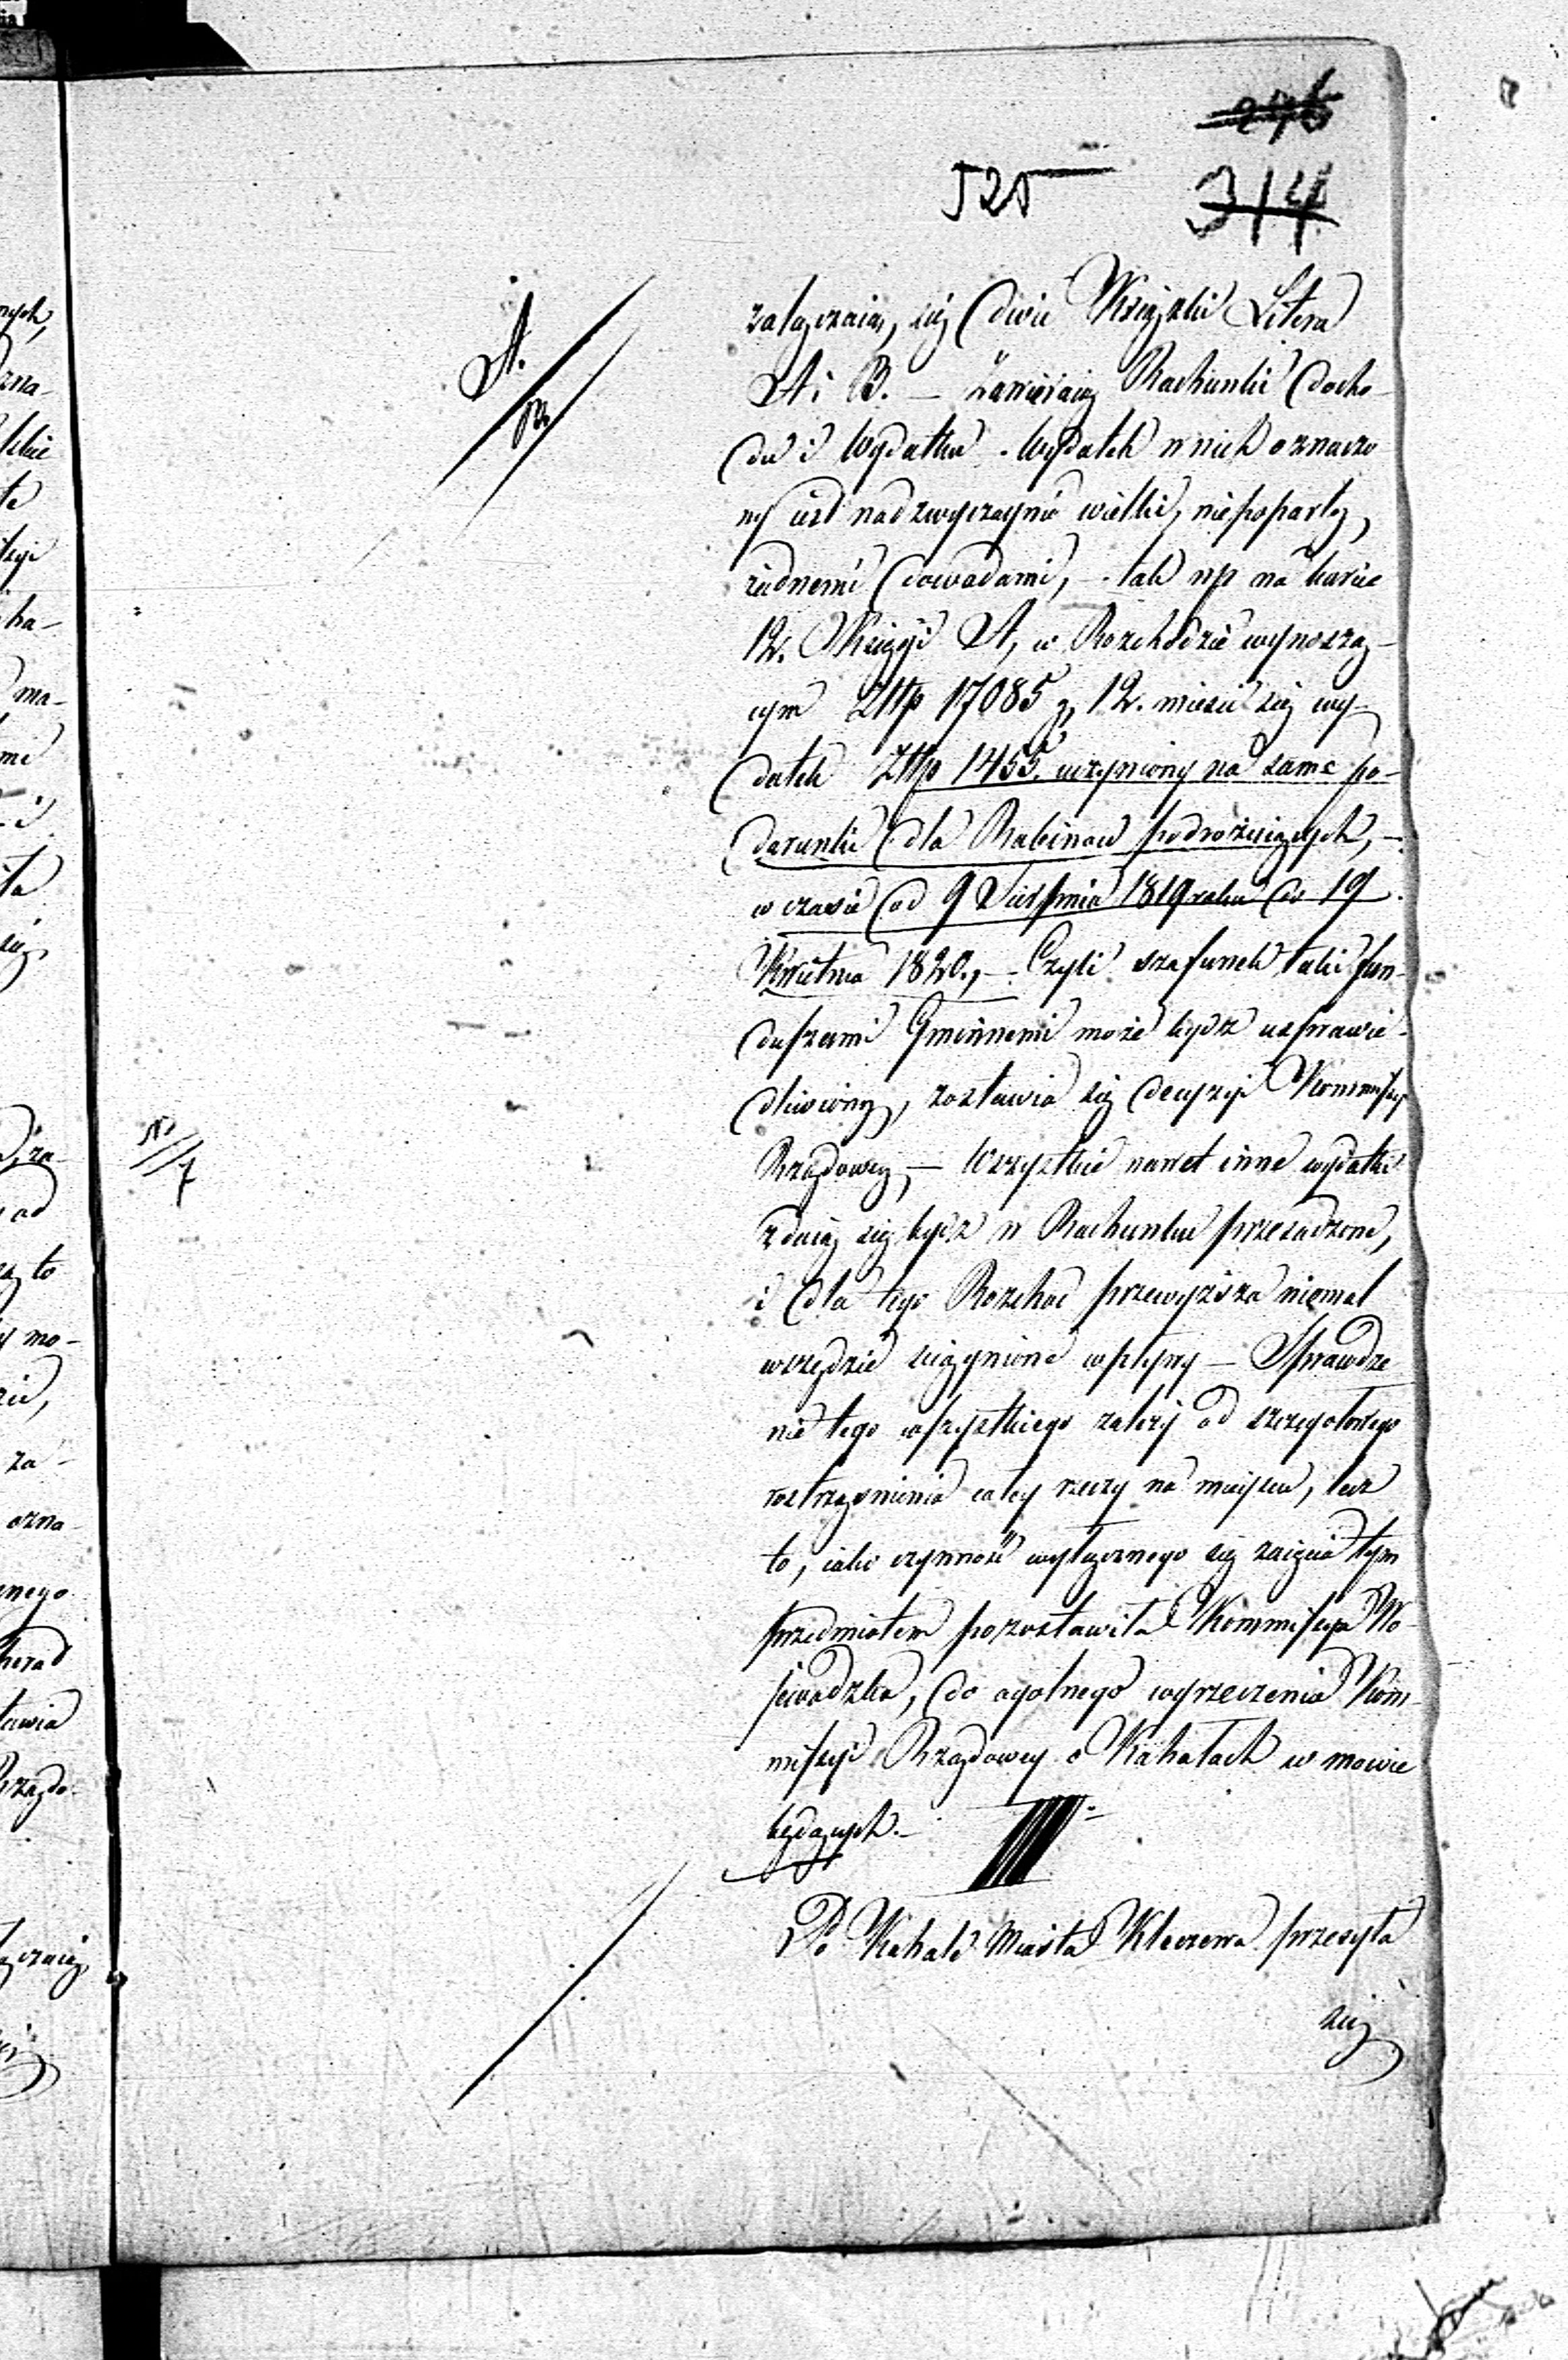 276
525 314
A.
B.
załączaią, się dwie Książki Litera
A i B. — Zawieraiąc Rachunki docho-
du i Wydatku. Wydatek w nich oznaczo
ny iest nadzwyczaynie wielki, niepoparty,
żadnemi dowodami, — tak np na karcie
12. Księgi A, w Rozchodzie wynoszą-
cym Złtp 17085 g, 12. mieści się wy-
datek Złtp 1455. uczyniony na same po-
darunki dla Rabinow podrożuiących, —
w czasie od 9 Sierpnia 1819 roku do 19
Kwietnia 1820., — Czyli szafunek taki fun-
duszami Gminnemi może bydź usprawie-
dliwiony, zostawia się decyzyi Kommissyi
Rządowey, — Wszystkie nawet inne wydatki
zdaią się bydź w Rachunku przesadzone,
i dla tego Rozchod przewyższa niemal
wszędzie sciągnione wpływy — Sprawdze
nie tego wszystkiego zależy od szczegołowego
roztrząśnienia całey rzeczy na mieyscu, lecz
to, iako czynność wyłącznego się zaięcia tym
przedmiotem pozostawiła Kommissya Wo-
iewodzka, do ogolnego wyrzeczenia Kom-
missyi Rządowey o Kahałach w mowie
będących.—
IIII
Po Kahale Miasta Kleczewa przesyła
się
N
7